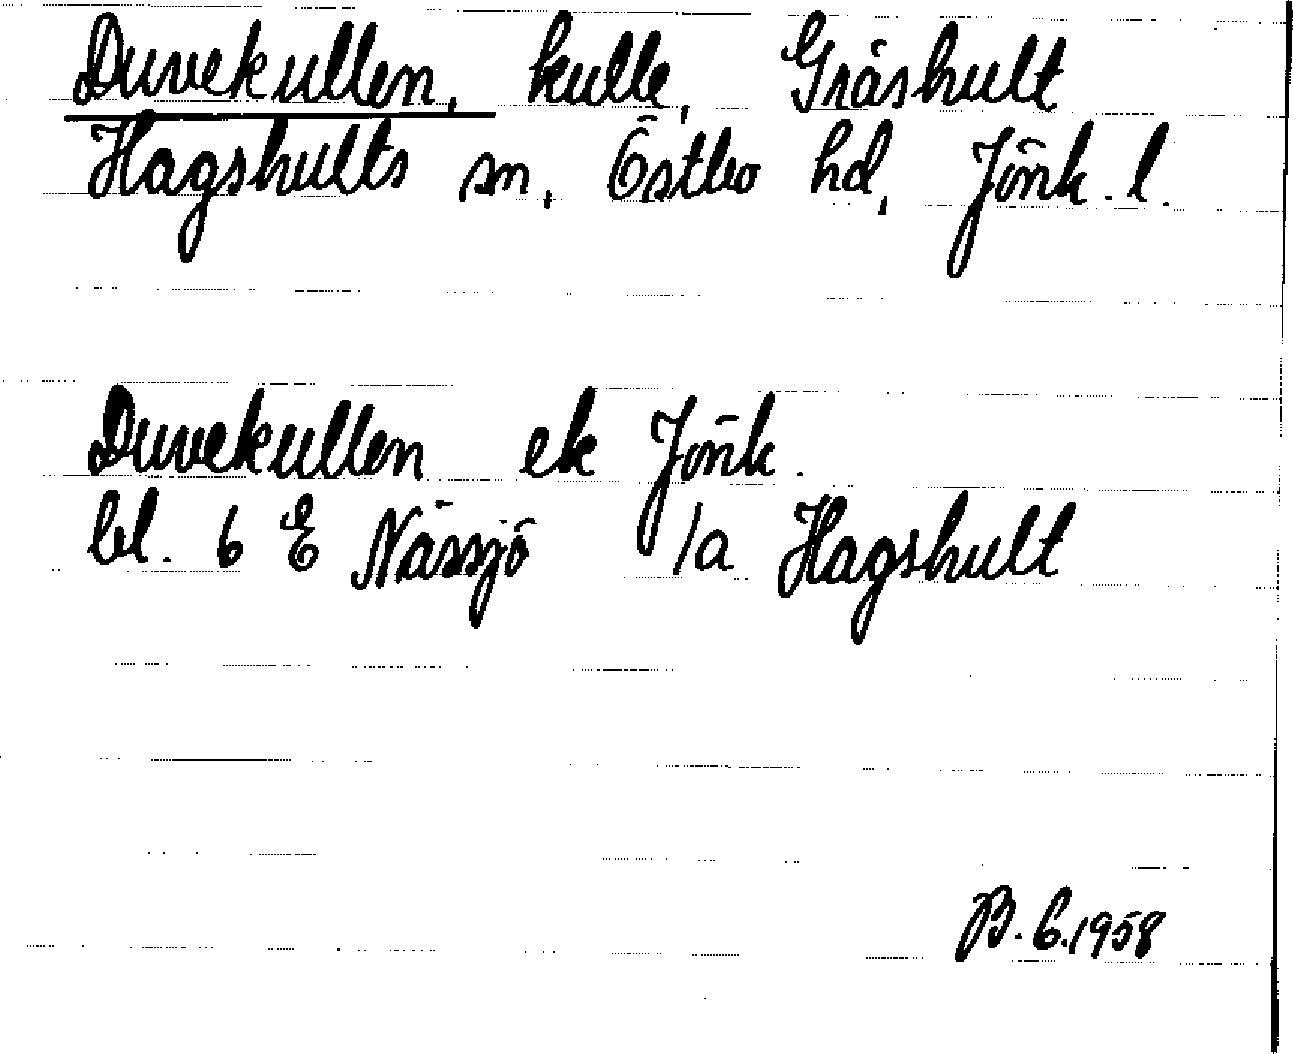 Duvekullen, kulle, Gråshult
Hagshults sn, Östbo hd, Jönk. l.
Duvekullen ek Jönk.
bl. 6 E Nässjö 1a Hagshult
B. G. 1958